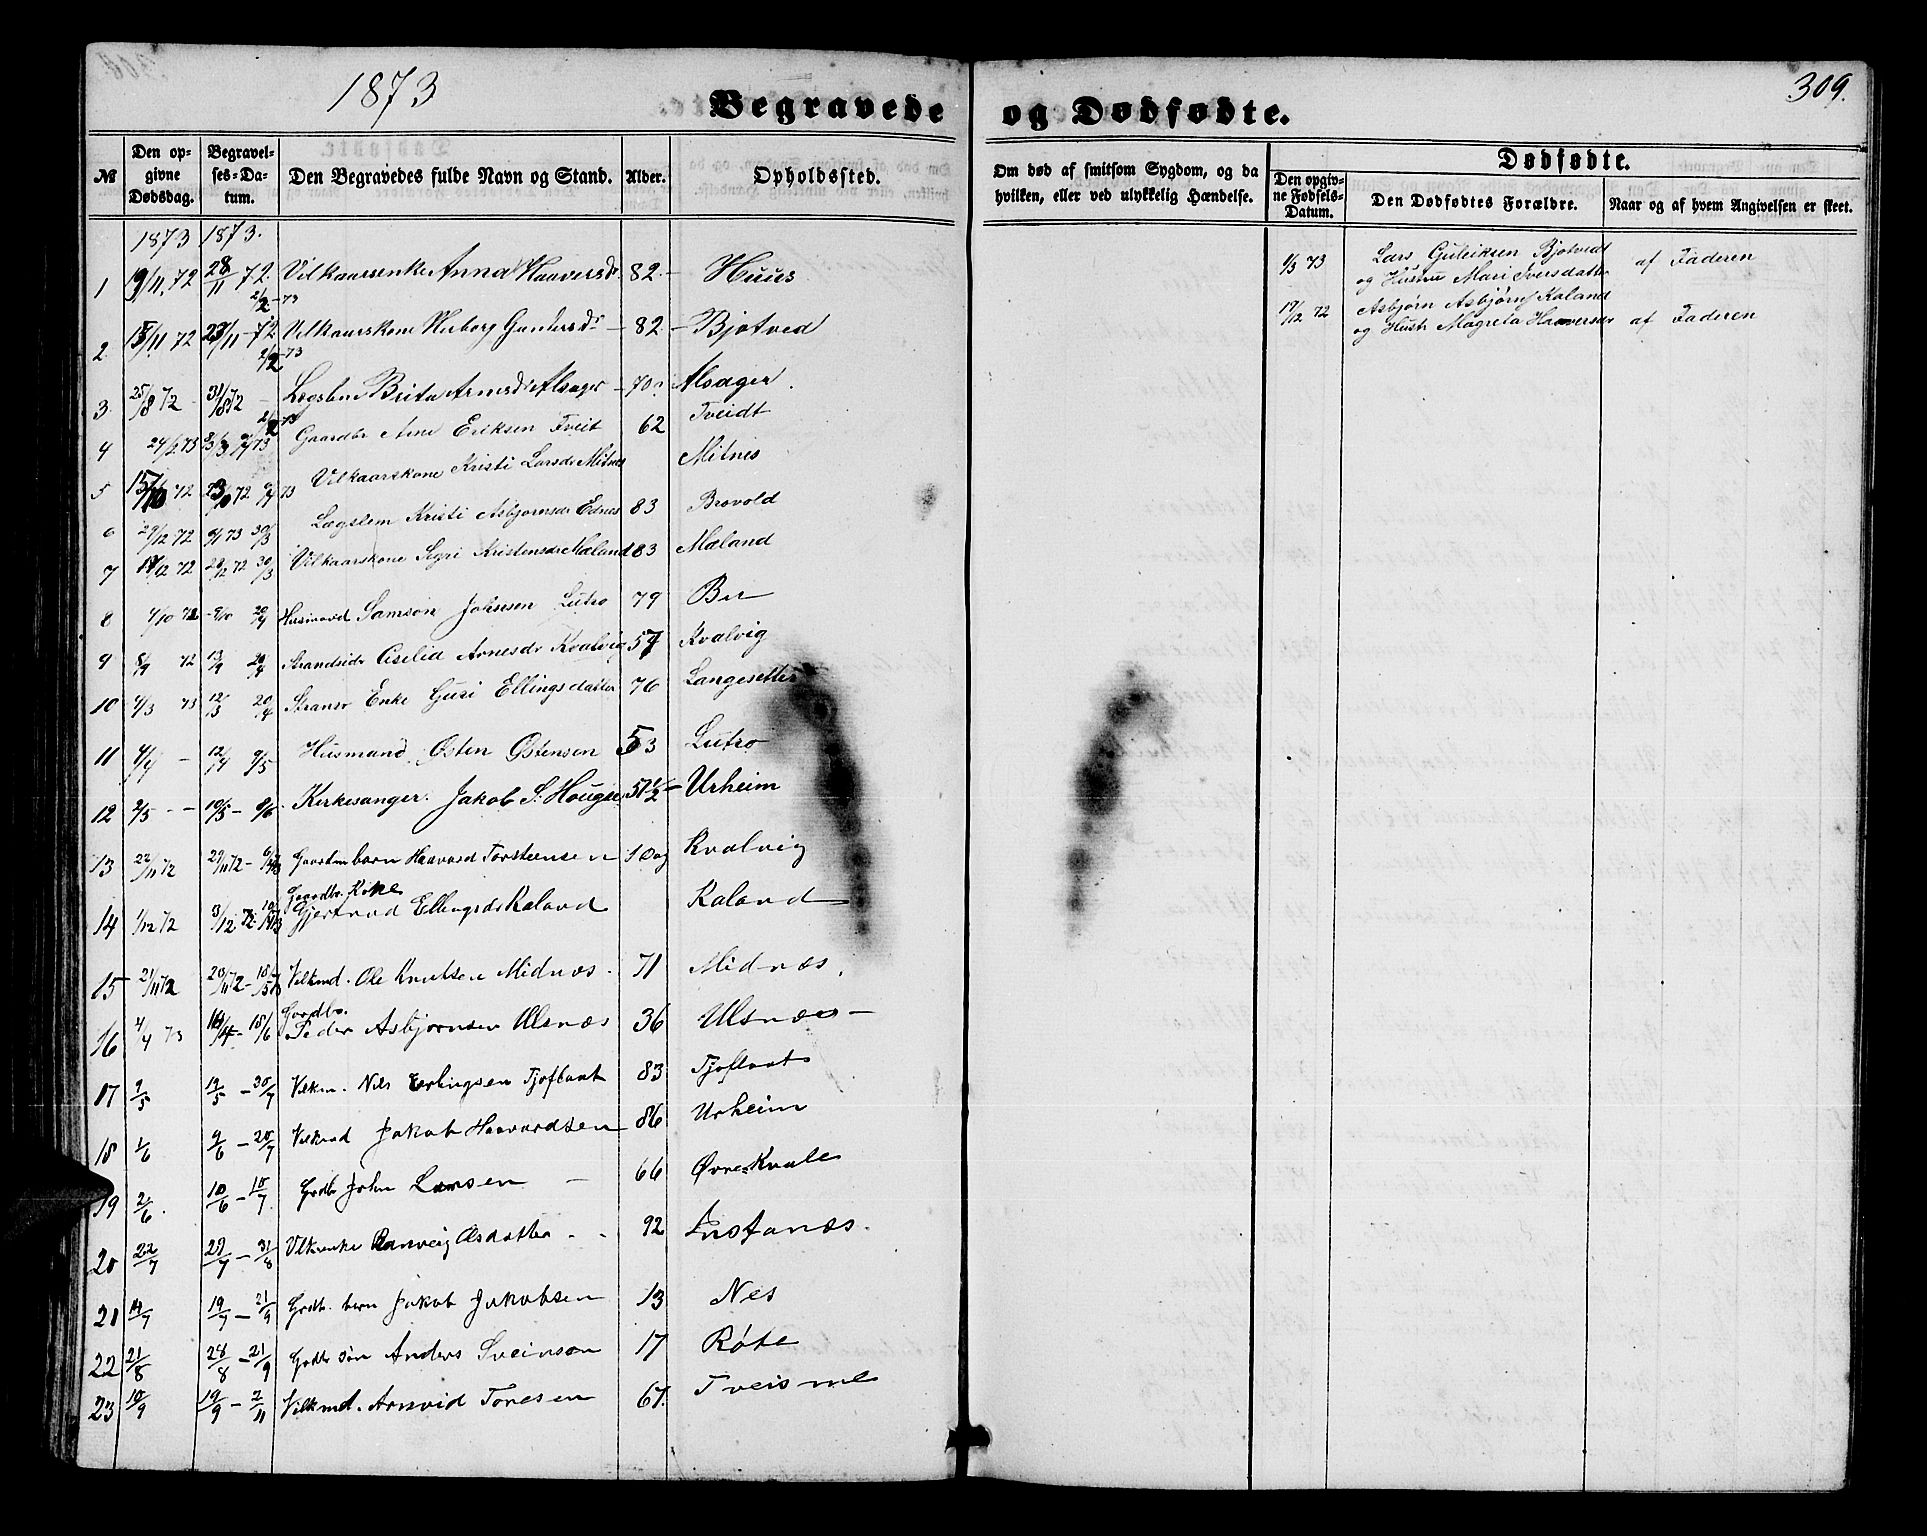 1873
309.
Begravede og Dødfødte.
№ Den opgivne Dødsdag. Begravelses-Datum. Den Begravedes fulde Navn og Stand. Alder. Opholdssted. Om død af smitsom Sygdom, og da hvilken, eller ved ulykkelig Hændelse.
Dødfødte.
Den opgivne Fødsels-Datum. Den Dødfødtes Forældre. Naar og af hvem Angivelsen er skeet.
1873 1873.
1 19/11 72 28/11 72 2/2-73 Vilkaarsenke Anna Haaversdr 82 - Huus
2 15/11 72 23/11-72 2/2-73 Vilkaarskone Gunarsdr - 82 - Bjotved
3 25/8 72 31/8 72 - 2/2 73 Brita Arnesdr Alsager - 70 Alsager.
4 24/2 73 73 Gaardbr Arne Eriksen Tveit 62 Tveidt
5 72 72 73 Vilkaarskone Kristi Larsdr Mitnes Mitnes
6 29/12 72 6/1 73 30/3 Lægslem Kristi Asbjørnsdr Ednes 83 Brovold
7 72 20/12 72 30/3 Vilkaarskone Sigri Kristensdr Mæland 83 Mæland
8 4/10 72 - 9/10 20/4 Husmand Samson Johnsen Lutro 79
9 8/9 72 13/9 20/4 Strandsidr Cicilia Arnesdr Kvalvig 57 Kvalvig
10 4/3 73 12/3 20/4 Enke Guri Ellingsdatter 76 Langesetter
11 4/4 - 12/4 9/5 Husmand Østen Østensen 53 Lutro
12 2/5 - - 10/5 - 8/6 Kirkesanger. Jakob S. Hougse 57 1/2 - Urheim
13 22/11 72 29/11 72 - Gaardm barn Haavard Torsteinsen 1 Dag Kvalvig
14 1/12 72 3/12 72 - Gaardbr. Kone
Gjertrud Ellingsdr Kaland Kaland
15 21/11 72 72 - Vilkmd. Ole Knutsen Midnæs. 71 Midnæs.
16 4/4 73 14/4 - 15/6 Gardbr.
Peder Asbjørnsen Ulsnæs 36 Ulsnæs -
17 9/5 19/5 - 30/7 Vilkm. Nils Erlingsen Tjoflaat 83 Tjoflaat
18 1/6 9/6 - 20/7 Vilkmd Jakob Haavardsen 86 Urheim
19 2/6. 10/6 - 10/7 Gardbr John Larsen - 66 Øvre Kvale
20 22/7 29/7 - 31/8 Vilkenke Ranveig Asdatter - - 92 Instanæs.
21 14/7 19/7 - 21/9 Grdb. barn Jakob Jakobsen 13 Nes
22 21/8 28/8 - 21/9 Gardb søn Anders Sveinson 17 Røte
23 10/9 19/9 - 2/11 Vilkmd. Arnvid Toresen 67. Tveisme
1/3 73 Lars Guleiksen Bjotvedt
og Hustru Mari Iversdatter af Faderen
17/12 72 Asbjørn Asbjørns Kaland
og Hustr Magreta Haaversdr af Faderen